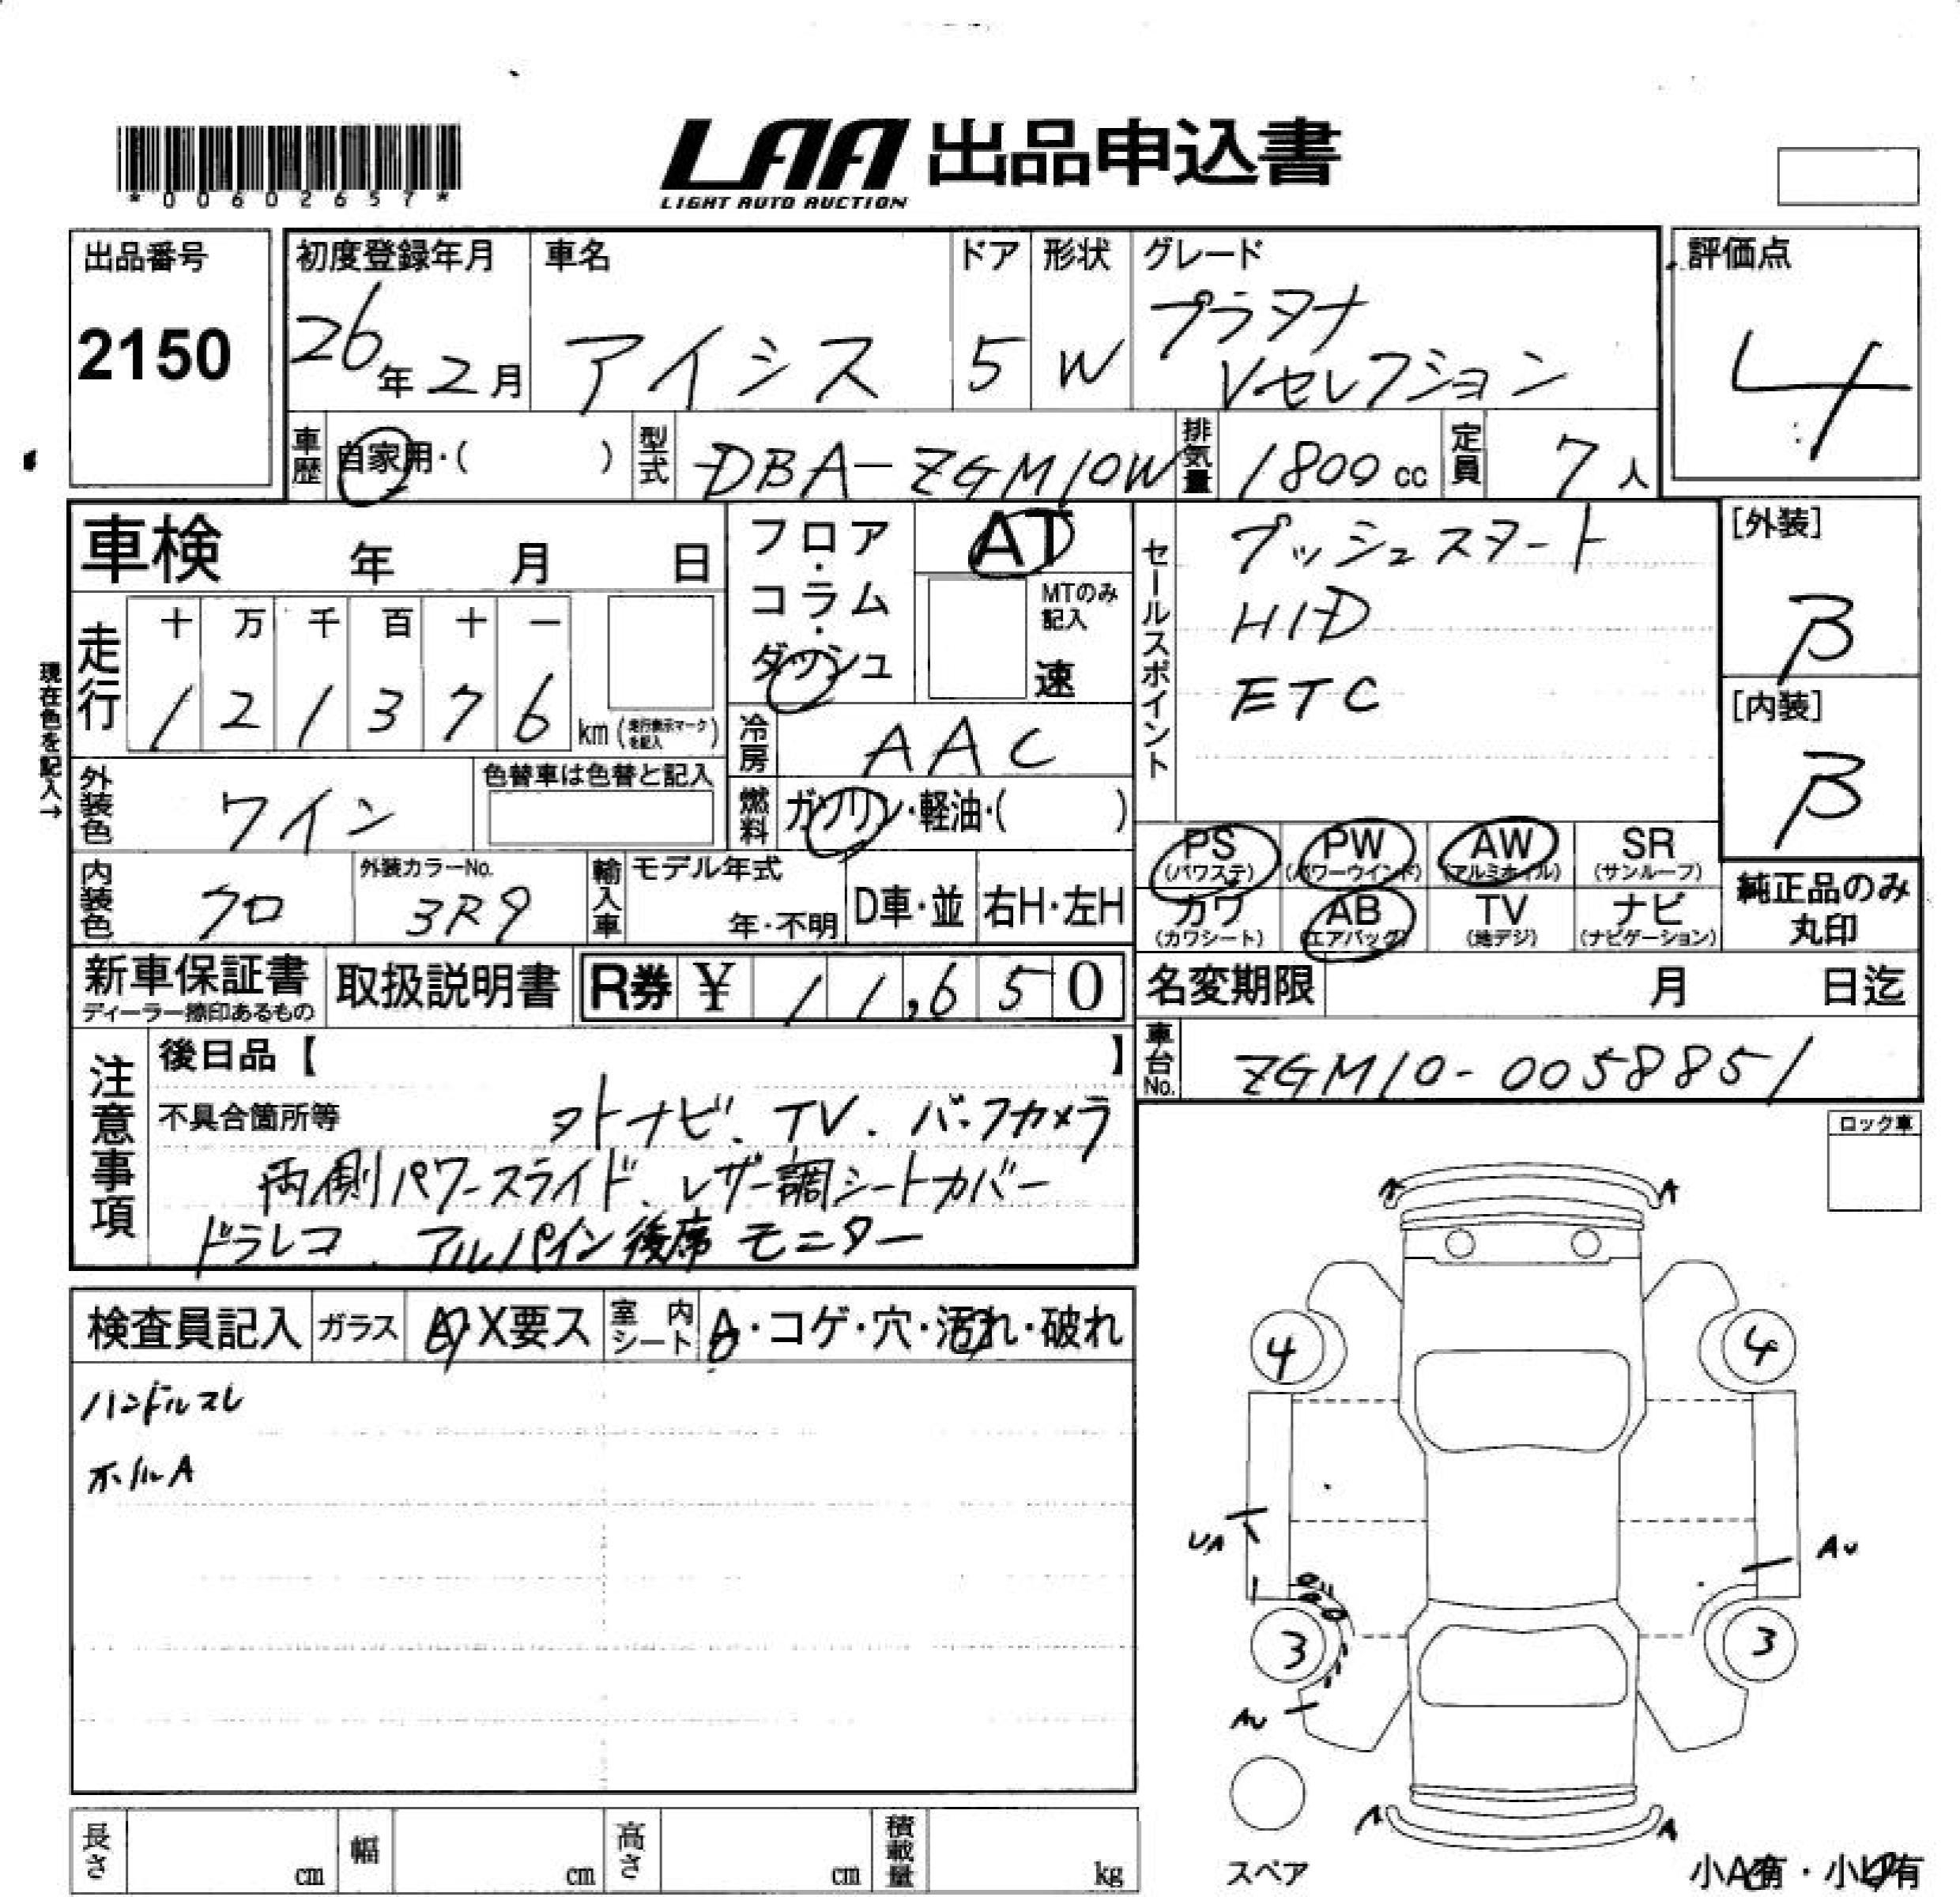 *00602657*
LAA 出品申込書
LIGHT AUTO AUCTION
出品番号
2150
初度登録年月
26年2月
車名
アイシス
ドア
5
形状
W
グレード
プラタナ
Vセレクション
評価点
4
車歴
自家用・( )
型式
DBA-ZGM10W
排気量
1800cc
定員
7人
車検 年 月 日
フロア・コラム・ダッシュ
AT
MTのみ記入
速
セールスポイント
プッシュスタート
HID
ETC
[外装]
B
[内装]
B
現在色を記入→
走行
十 万 千 百 十 一
1 2 1 3 7 6 km (走行表示マークを記入)
冷房
AAC
外装色
ワイン
色替車は色替と記入
燃料
ガソリン・軽油・( )
内装色
クロ
外装カラーNo.
3R9
輸入車
モデル年式
年・不明
D車・並
右H・左H
PS (パワステ)
PW (パワーウインド)
AW (アルミホイル)
SR (サンルーフ)
カワ (カワシート)
AB (エアバッグ)
TV (地デジ)
ナビ (ナビゲーション)
純正品のみ丸印
新車保証書
ディーラー捺印あるもの
取扱説明書
R券 ¥ 11,650
名変期限 月 日迄
車台No.
ZGM10-0058851
注意事項
後日品【 】
不具合箇所等 ヲトナビ、TV、バックカメラ
両側パワースライド、レザー調シートカバー
ドラレコ、アルパイン後席モニター
ロック車
検査員記入
ガラス
A・X要ス
室内シート
・コゲ・穴・汚れ・破れ
ハンドルスレ
ホイルA
A A
4 4
UA AU
3 3
AU
A A
スペア
小A有・小U有
長さ cm
幅 cm
高さ cm
積載量 kg